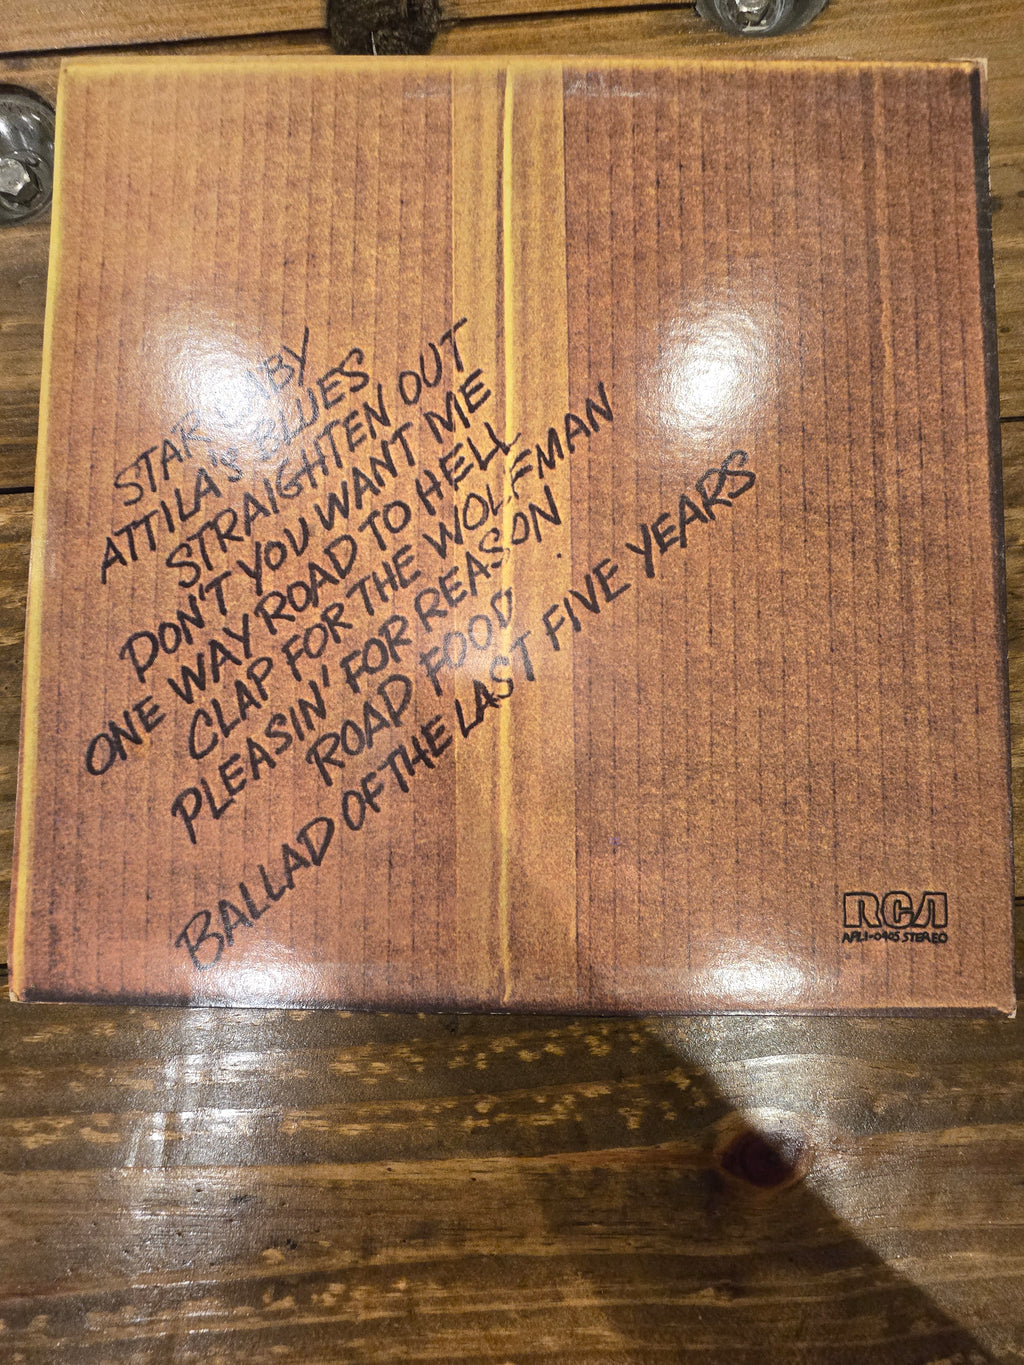 STAR BABY
ATTILA'S BLUES
STRAIGHTEN OUT
DON'T YOU WANT ME
ONE WAY ROAD TO HELL
CLAP FOR THE WOLFMAN
PLEASIN' FOR REASON
ROAD FOOD
BALLAD OF THE LAST FIVE YEARS
RCA
APL1-0405 STEREO